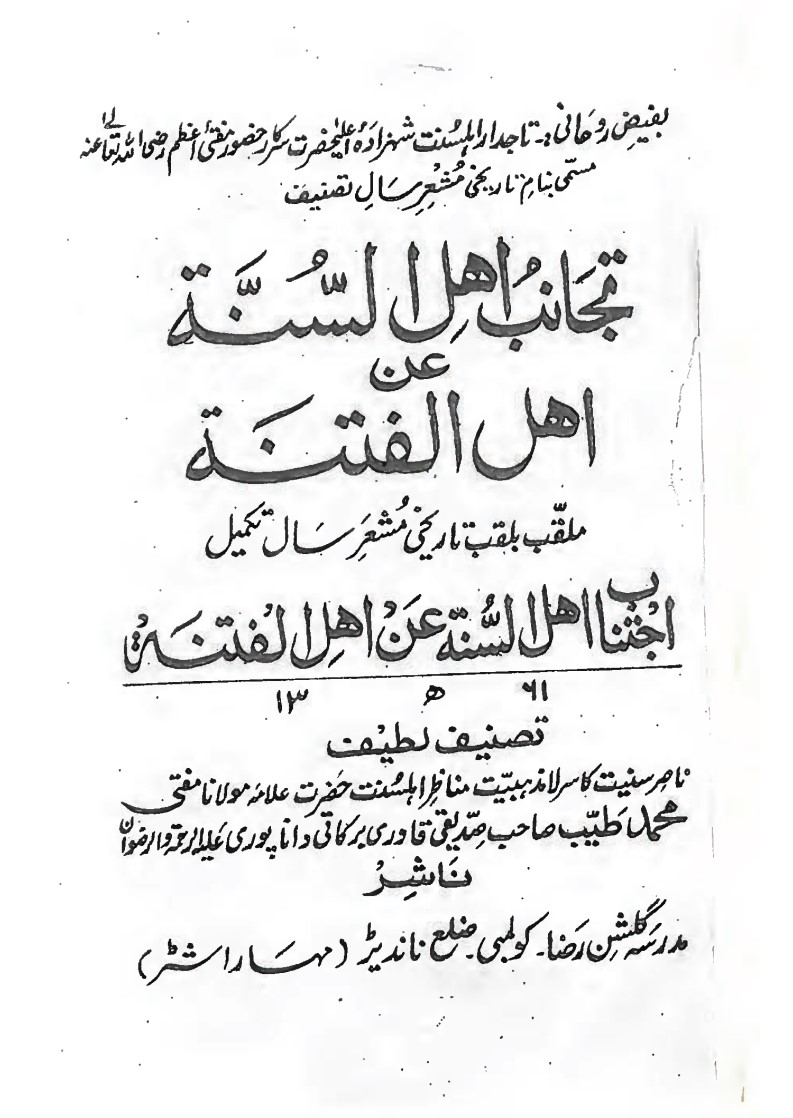 بفیضِ روحانی :۔ تاجدار اہلسُنت شہزادۂ اعلیٰحضرت سرکار حضور مفتیٔ اعظم رضی اللہ تعالےٰ عنہ
مسمّٰی بنامِ تاریخی مُشعِرِ سَالِ تصنیف
تجَانبُ اَھلِ السُّنَّة
عن
اھل الفتنَة
ملقّب بلقب تاریخی مُشعَرِ سَال تکمیل
اجْتنابُ اھل السُّنة عَنْ اھلِ الفُتنَةْ
۱۳ ھ ۶۱
تصنیف لطیف
ناصر سنیت کاسر لامذہبیّت مناظرِ اہلسُنت حَضرت علامہ مولانا مفتی
محمد طَیّب صاحب صِدّیقی قادری برکاتی داناپوری عَلیہ الرحمۃ والرضوان
نَاشِرْ
مدرسَہ گلشنِ رَضا۔ کولمبی۔ ضلع ناندیڑ (مہَاراشٹر)